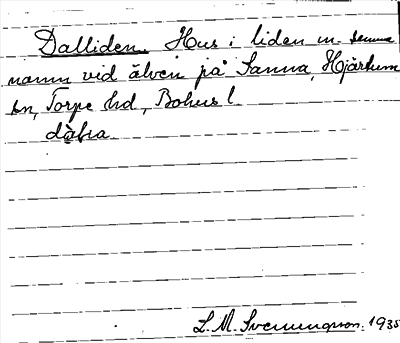 Dalliden. Hus i liden m. samma
namn vid älven på Sanna, Hjärtum
sn, Torpe hd, Bohus l.
dàlıa
L. M. Svenungson. 1935